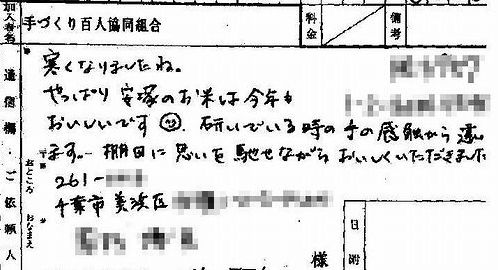 加入者名
手づくり百人協同組合
料金
備考
通信欄・ご依頼人
寒くなりましたね。
やっぱり安塚のお米は今年も
おいしいです 研いでいる時の手の感触から違い
ます。棚田に思いを馳せながらおいしくいただきました
おところ
261-
千葉市美浜区
おなまえ
様
日附